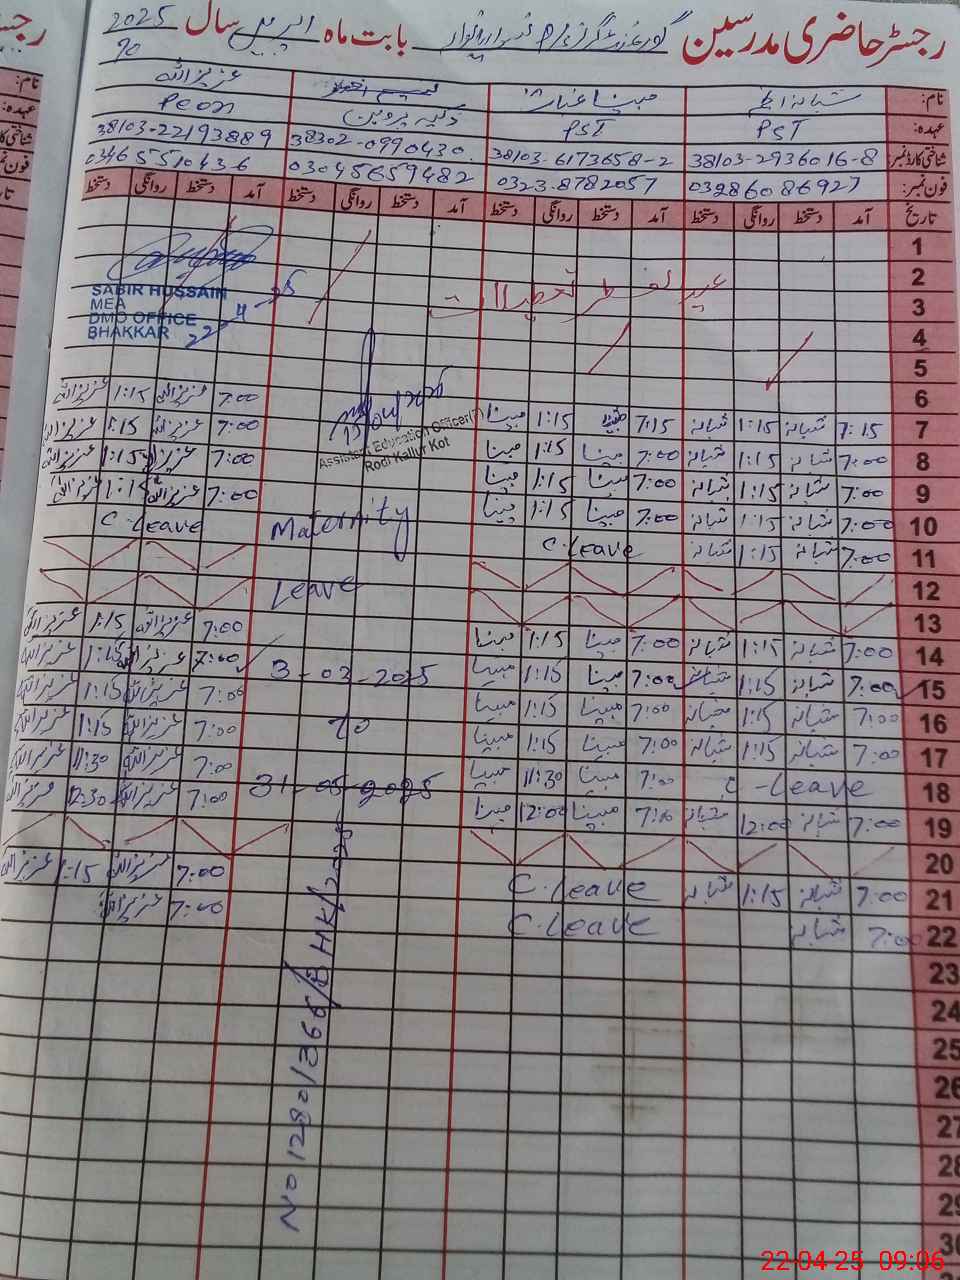 رجسٹر حاضری مدرسین گورنمنٹ گرلز P/S بابت ماہ اپریل سال 2025
نام: شبانہ مبینا عزیز اللہ
عہدہ: PST PST Peon
شناختی کارڈ نمبر 38103-2936016-8 38103-6173658-2 38302-0990430 38103-22193889
فون نمبر: 03286086927 0323-8782057 03045659482 03465510436
تاریخ آمد دستخط روانگی دستخط آمد دستخط روانگی دستخط آمد دستخط روانگی دستخط آمد دستخط روانگی دستخط
1
2 عید الفطر تعطیلات
3
SABIR HUSSAIN
MEA
DMO OFFICE
BHAKKAR
22-4-25
4
5
6
7:00 عزیز اللہ 1:15 عزیز اللہ
15/04/2025
Assistant Education Officer(F)
Rodi Kallur Kot
7 7:15 شبانہ 1:15 شبانہ 7:15 مبینا 1:15 مبینا 7:00 عزیز اللہ 1:15 عزیز اللہ
8 7:00 شبانہ 1:15 شبانہ 7:00 مبینا 1:15 مبینا 7:00 عزیز اللہ 1:15 عزیز اللہ
9 7:00 شبانہ 1:15 شبانہ 7:00 مبینا 1:15 مبینا 7:00 عزیز اللہ 1:15 عزیز اللہ
10 7:00 شبانہ 1:15 شبانہ 7:00 مبینا 1:15 مبینا Maternity C.Leave
11 7:00 شبانہ 1:15 شبانہ C.Leave
12 Leave
13
14 7:00 شبانہ 1:15 شبانہ 7:00 مبینا 1:15 مبینا 7:00 عزیز اللہ 1:15 عزیز اللہ
15 7:00 شبانہ 1:15 شبانہ 7:00 مبینا 1:15 مبینا 3-03-2025 7:00 عزیز اللہ 1:15 عزیز اللہ
16 7:00 شبانہ 1:15 شبانہ 7:00 مبینا 1:15 مبینا To 7:00 عزیز اللہ 1:15 عزیز اللہ
17 7:00 شبانہ 1:15 شبانہ 7:00 مبینا 1:15 مبینا 7:00 عزیز اللہ 1:15 عزیز اللہ
18 C-Leave 7:00 مبینا 11:30 مبینا 31-05-2025 7:00 عزیز اللہ 11:30 عزیز اللہ
19 7:00 شبانہ 12:00 شبانہ 7:00 مبینا 12:00 مبینا 7:00 عزیز اللہ 12:30 عزیز اللہ
20
21 7:00 شبانہ 1:15 شبانہ C.Leave 7:00 عزیز اللہ 1:15 عزیز اللہ
22 7:00 شبانہ C.Leave 7:00 عزیز اللہ
No 1280/366/BHK/2025
23
24
25
26
27
28
29
30
22-04-25 09:06